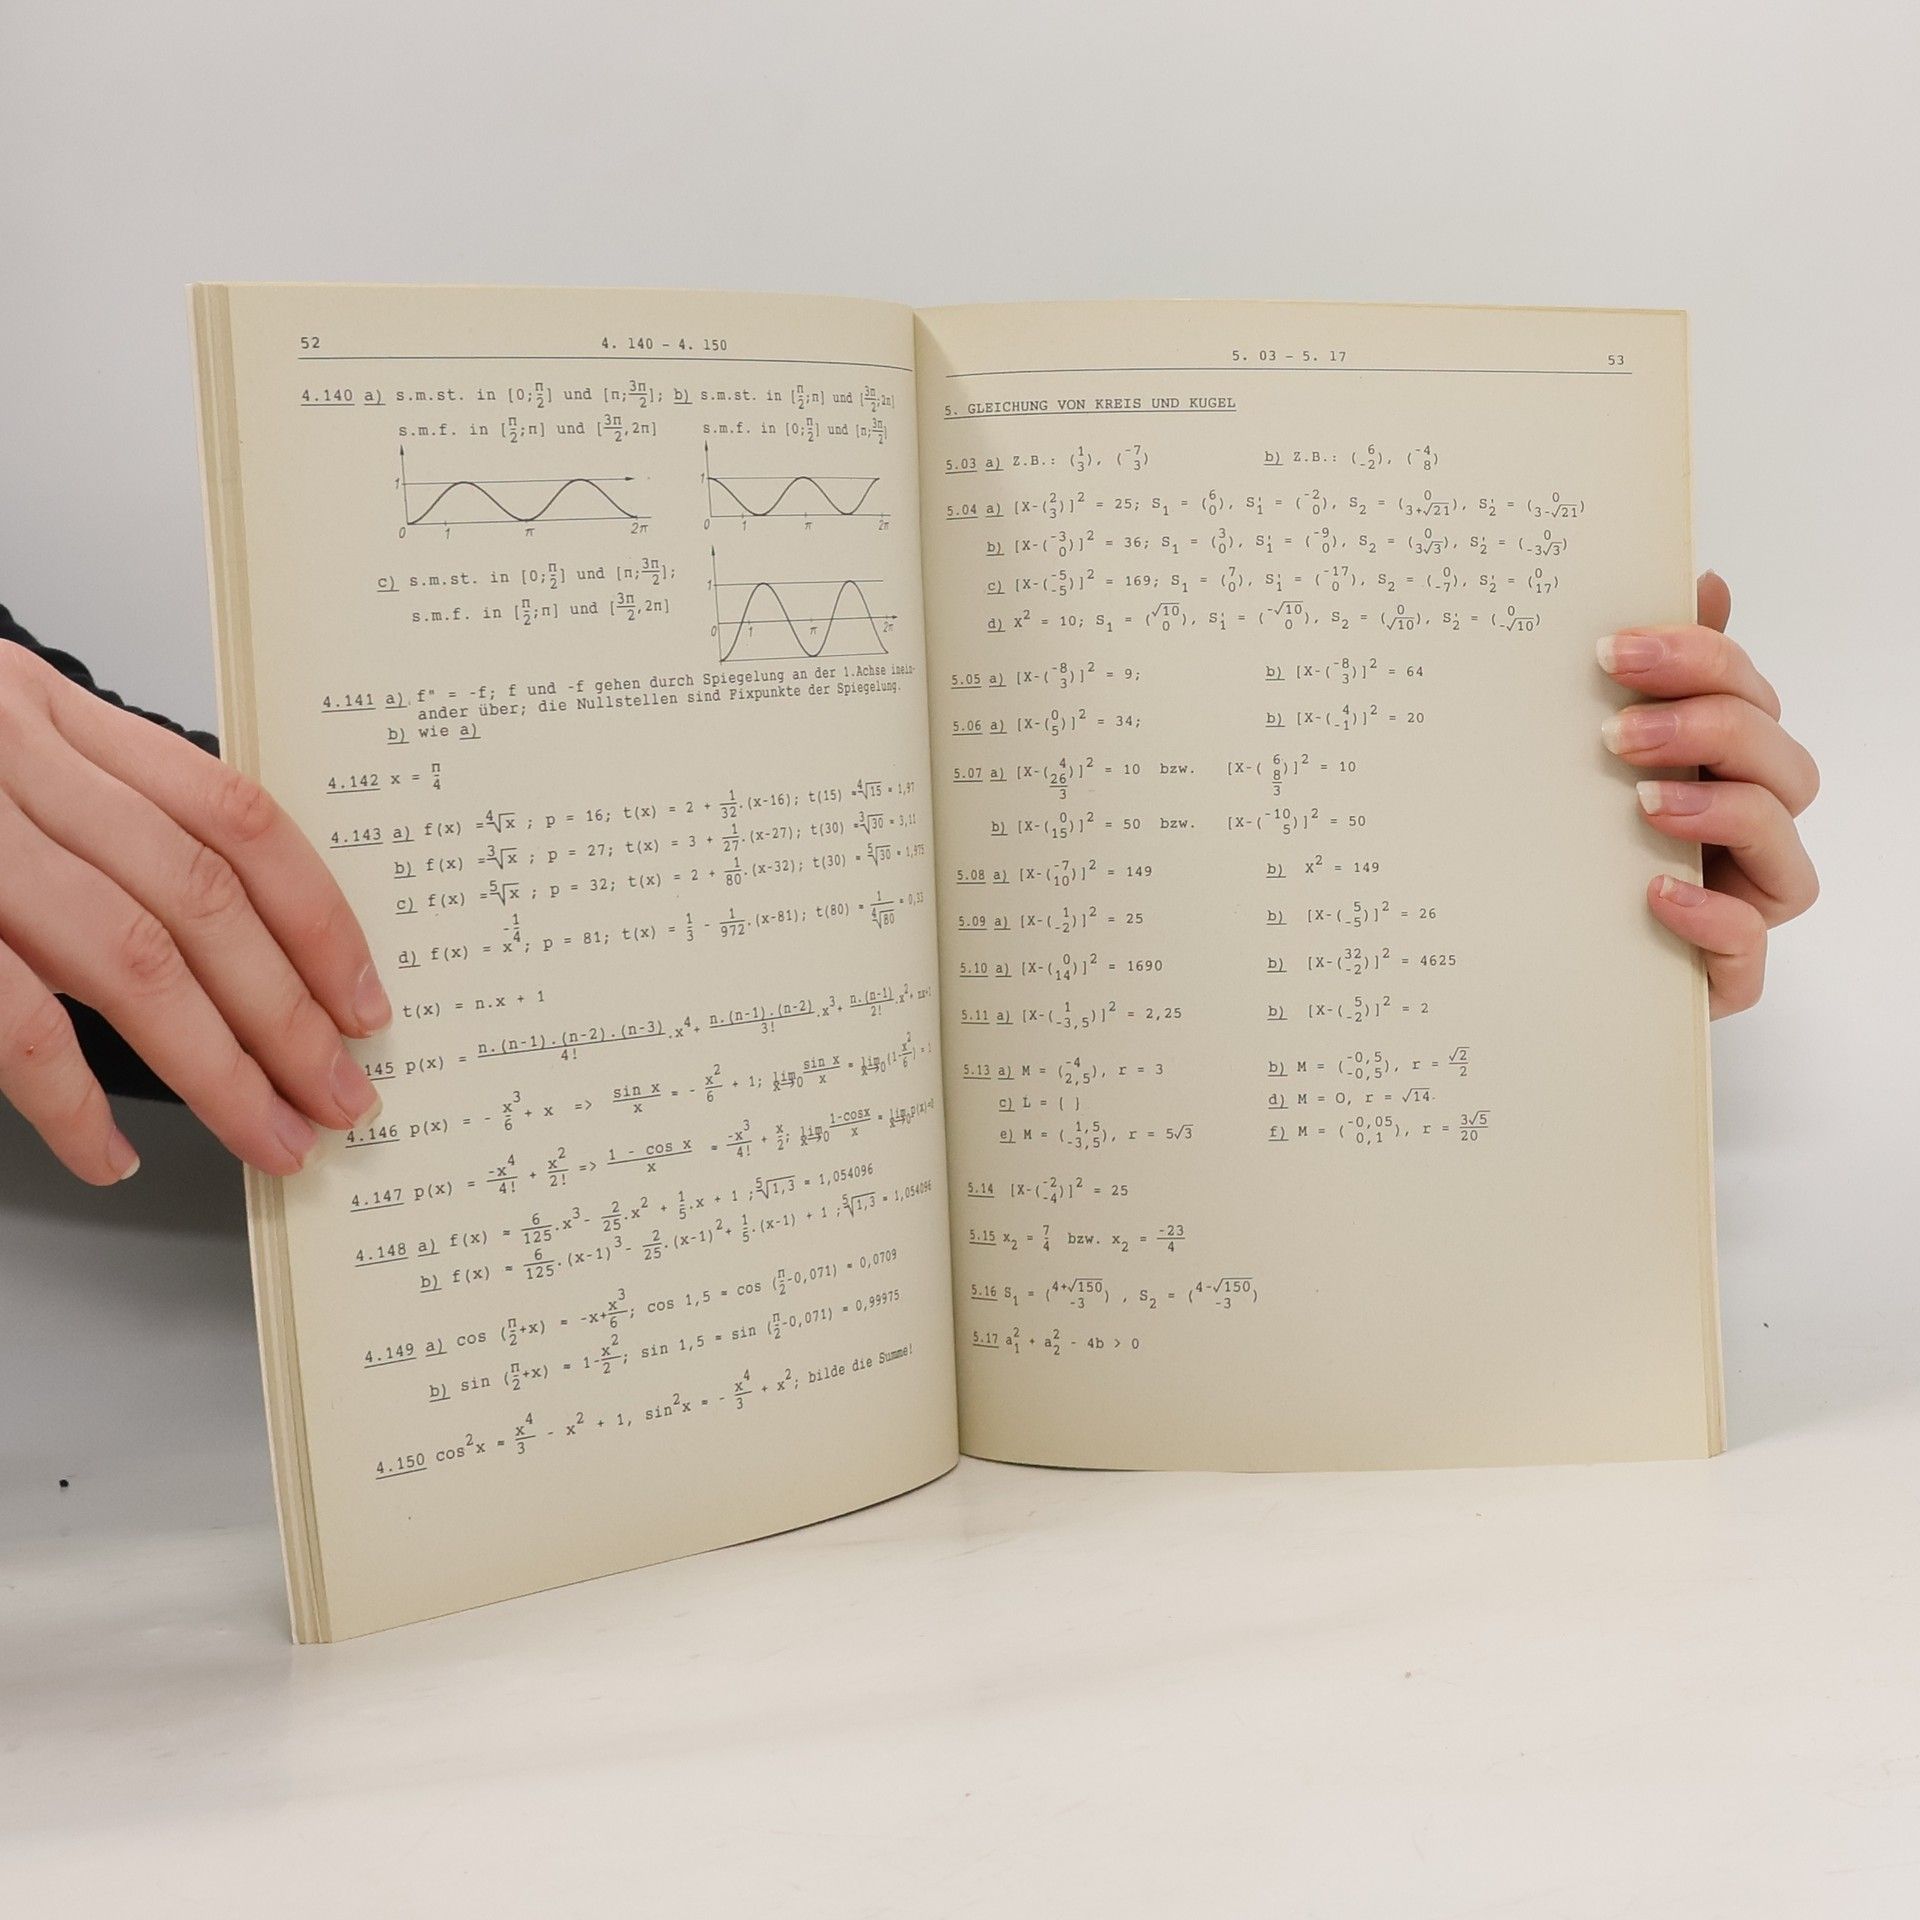 52 4. 140 - 4. 150
4.140 a) s.m.st. in [0;π/2] und [π;3π/2]; b) s.m.st. in [π/2;π] und [3π/2;2π]
s.m.f. in [π/2;π] und [3π/2,2π] s.m.f. in [0;π/2] und [π;3π/2]
1 0 1 π 2π
1 0 1 π 2π
c) s.m.st. in [0;π/2] und [π;3π/2];
s.m.f. in [π/2;π] und [3π/2,2π]
1 0 1 π 2π
4.141 a) f" = -f; f und -f gehen durch Spiegelung an der 1.Achse inein-
ander über; die Nullstellen sind Fixpunkte der Spiegelung.
b) wie a)
4.142 x = π/4
4.143 a) f(x) = ⁴√x ; p = 16; t(x) = 2 + 1/32.(x-16); t(15) ≈ ⁴√15 ≈ 1,97
b) f(x) = ³√x ; p = 27; t(x) = 3 + 1/27.(x-27); t(30) ≈ ³√30 ≈ 3,11
c) f(x) = ⁵√x ; p = 32; t(x) = 2 + 1/80.(x-32); t(30) ≈ ⁵√30 ≈ 1,975
d) f(x) = x^(-1/4); p = 81; t(x) = 1/3 - 1/972.(x-81); t(80) ≈ 1/⁴√80 ≈ 0,33
t(x) = n.x + 1
145 p(x) = n.(n-1).(n-2).(n-3)/4! .x⁴ + n.(n-1).(n-2)/3! .x³ + n.(n-1)/2! .x² + nx+1
4.146 p(x) = - x³/6 + x => sin x/x ≈ - x²/6 + 1; lim x→0 sin x/x = lim x→0 (1-x²/6) = 1
4.147 p(x) = -x⁴/4! + x²/2! => 1 - cos x/x ≈ -x³/4! + x/2; lim x→0 1-cosx/x = lim x→0 p(x)=0
4.148 a) f(x) ≈ 6/125.x³ - 2/25.x² + 1/5.x + 1 ; ⁵√1,3 ≈ 1,054096
b) f(x) ≈ 6/125.(x-1)³ - 2/25.(x-1)² + 1/5.(x-1) + 1 ; ⁵√1,3 ≈ 1,054096
4.149 a) cos (π/2+x) ≈ -x+x³/6; cos 1,5 ≈ cos (π/2-0,071) ≈ 0,0709
b) sin (π/2+x) ≈ 1-x²/2; sin 1,5 ≈ sin (π/2-0,071) ≈ 0,99975
4.150 cos²x ≈ x⁴/3 - x² + 1, sin²x ≈ - x⁴/3 + x²; bilde die Summe!
5. 03 - 5. 17 53
5. GLEICHUNG VON KREIS UND KUGEL
5.03 a) Z.B.: (1/3), (-7/3) b) Z.B.: (6/-2), (-4/8)
5.04 a) [X-(2/3)]² = 25; S₁ = (6/0), S₁' = (-2/0), S₂ = (0/3+√21), S₂' = (0/3-√21)
b) [X-(-3/0)]² = 36; S₁ = (3/0), S₁' = (-9/0), S₂ = (0/3√3), S₂' = (0/-3√3)
c) [X-(-5/-5)]² = 169; S₁ = (7/0), S₁' = (-17/0), S₂ = (0/-7), S₂' = (0/17)
d) X² = 10; S₁ = (√10/0), S₁' = (-√10/0), S₂ = (0/√10), S₂' = (0/-√10)
5.05 a) [X-(-8/3)]² = 9; b) [X-(-8/3)]² = 64
5.06 a) [X-(0/5)]² = 34; b) [X-(4/-1)]² = 20
5.07 a) [X-(4/(26/3))]² = 10 bzw. [X-(6/(8/3))]² = 10
b) [X-(0/15)]² = 50 bzw. [X-(-10/5)]² = 50
5.08 a) [X-(-7/10)]² = 149 b) X² = 149
5.09 a) [X-(1/-2)]² = 25 b) [X-(5/-5)]² = 26
5.10 a) [X-(0/14)]² = 1690 b) [X-(32/-2)]² = 4625
5.11 a) [X-(1/-3,5)]² = 2,25 b) [X-(5/-2)]² = 2
5.13 a) M = (-4/2,5), r = 3 b) M = (-0,5/-0,5), r = √2/2
c) L = { } d) M = O, r = √14.
e) M = (1,5/-3,5), r = 5√3 f) M = (-0,05/0,1), r = 3√5/20
5.14 [X-(-2/-4)]² = 25
5.15 x₂ = 7/4 bzw. x₂ = -23/4
5.16 S₁ = (4+√150/-3) , S₂ = (4-√150/-3)
5.17 a₁² + a₂² - 4b > 0